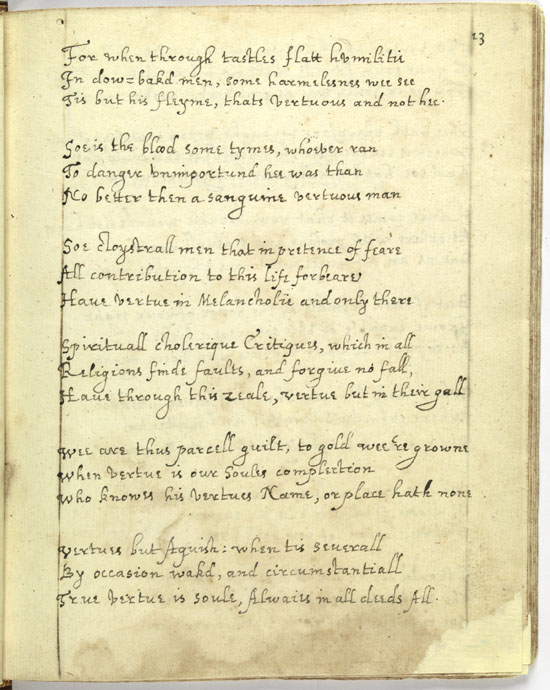 13
For when through tastles flatt humilitie
In dow=bakd men, some harmelesnes wee see
Tis but his fleyme, thats vertuous and not hee.
Soe is the blood some tymes, whoever ran
To danger unimportund hee was than
No better then a sanguine vertuous man
Soe cloystrall men that in pretence of feare
All contribution to this life forbeare
Have vertue in Melancholie and only there
Spirituall cholerique Critiques, which in all
Religions finde faults, and forgive no fall,
Have through this zeale, vertue but in their gall
Wee are thus parcell guilt, to gold wee're growne
When vertue is our Soules complection
Who knowes his vertues Name, or place hath none
Vertues but Aguish: when tis severall
By occasion wakd, and circumstantiall
True vertue is soule, Alwaies in all deeds All.